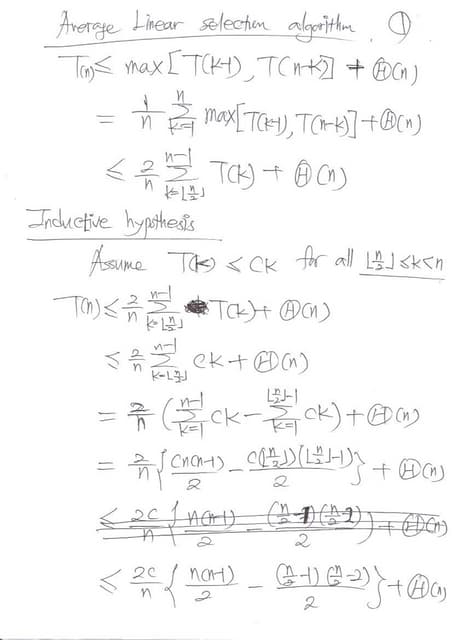 Average Linear selection algorithm. ①
T(n) ≤ max[T(k-1), T(n-k)] + Θ(n)
= 1/n Σ_{k=1}^{n} max[T(k-1), T(n-k)] + Θ(n)
≤ 2/n Σ_{k=⌊n/2⌋}^{n-1} T(k) + Θ(n)
Inductive hypothesis
Assume T(k) ≤ ck for all ⌊n/2⌋ ≤ k < n
T(n) ≤ 2/n Σ_{k=⌊n/2⌋}^{n-1} T(k) + Θ(n)
≤ 2/n Σ_{k=⌊n/2⌋}^{n-1} ck + Θ(n)
= 2/n (Σ_{k=1}^{n-1} ck - Σ_{k=1}^{⌊n/2⌋-1} ck) + Θ(n)
= 2/n { cn(n-1)/2 - c(⌊n/2⌋)(⌊n/2⌋-1)/2 } + Θ(n)
≤ 2c/n { n(n-1)/2 - (n/2-1)(n/2-2)/2 } + Θ(n)
≤ 2c/n { n(n-1)/2 - (n/2-1)(n/2-2)/2 } + Θ(n)